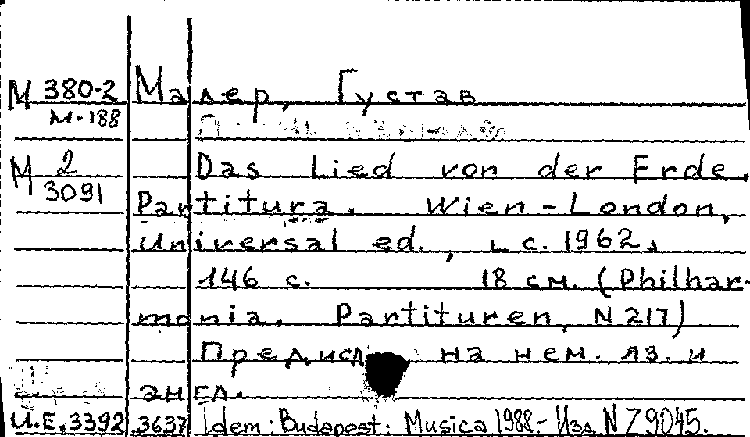 М 380-2 Малер, Густав
М-188
М 2 Das Lied von der Erde.
3091 Partitura. Wien-London,
Universal ed., c. 1962.
146 с. 18 см. (Philhar-
monia. Partituren, N 217)
Предисл. на нем. яз. и
англ.
U.E.3392 3637 Idem: Budapest: Musica 1988.- Изд. N Z9045.